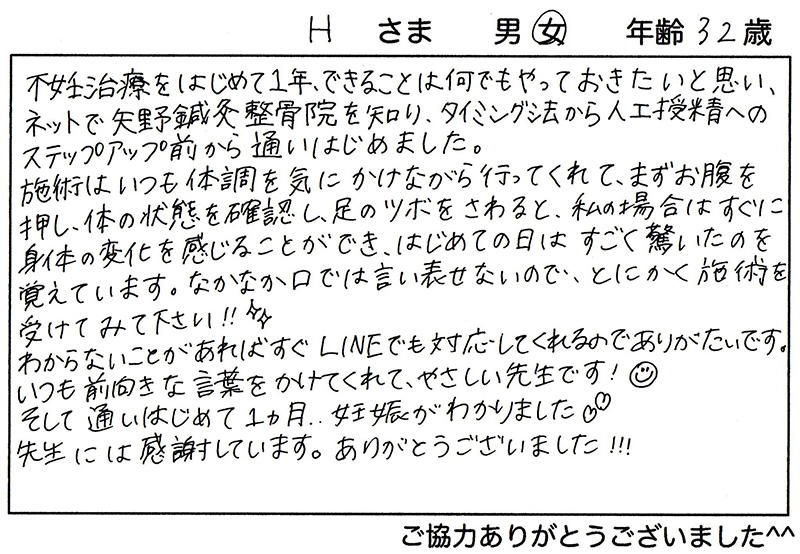 H さま 男 女 年齢 32歳
不妊治療をはじめて1年、できることは何でもやっておきたいと思い、
ネットで矢野鍼灸整骨院を知り、タイミング法から人工授精への
ステップアップ前から通いはじめました。
施術はいつも体調を気にかけながら行ってくれて、まずお腹を
押し、体の状態を確認し、足のツボをさわると、私の場合はすぐに
身体の変化を感じることができ、はじめての日はすごく驚いたのを
覚えています。なかなか口では言い表せないので、とにかく施術を
受けてみて下さい!!
わからないことがあればすぐLINEでも対応してくれるのでありがたいです。
いつも前向きな言葉をかけてくれて、やさしい先生です!
そして通いはじめて1ヵ月..妊娠がわかりました
先生には感謝しています。ありがとうございました!!!
ご協力ありがとうございました^^